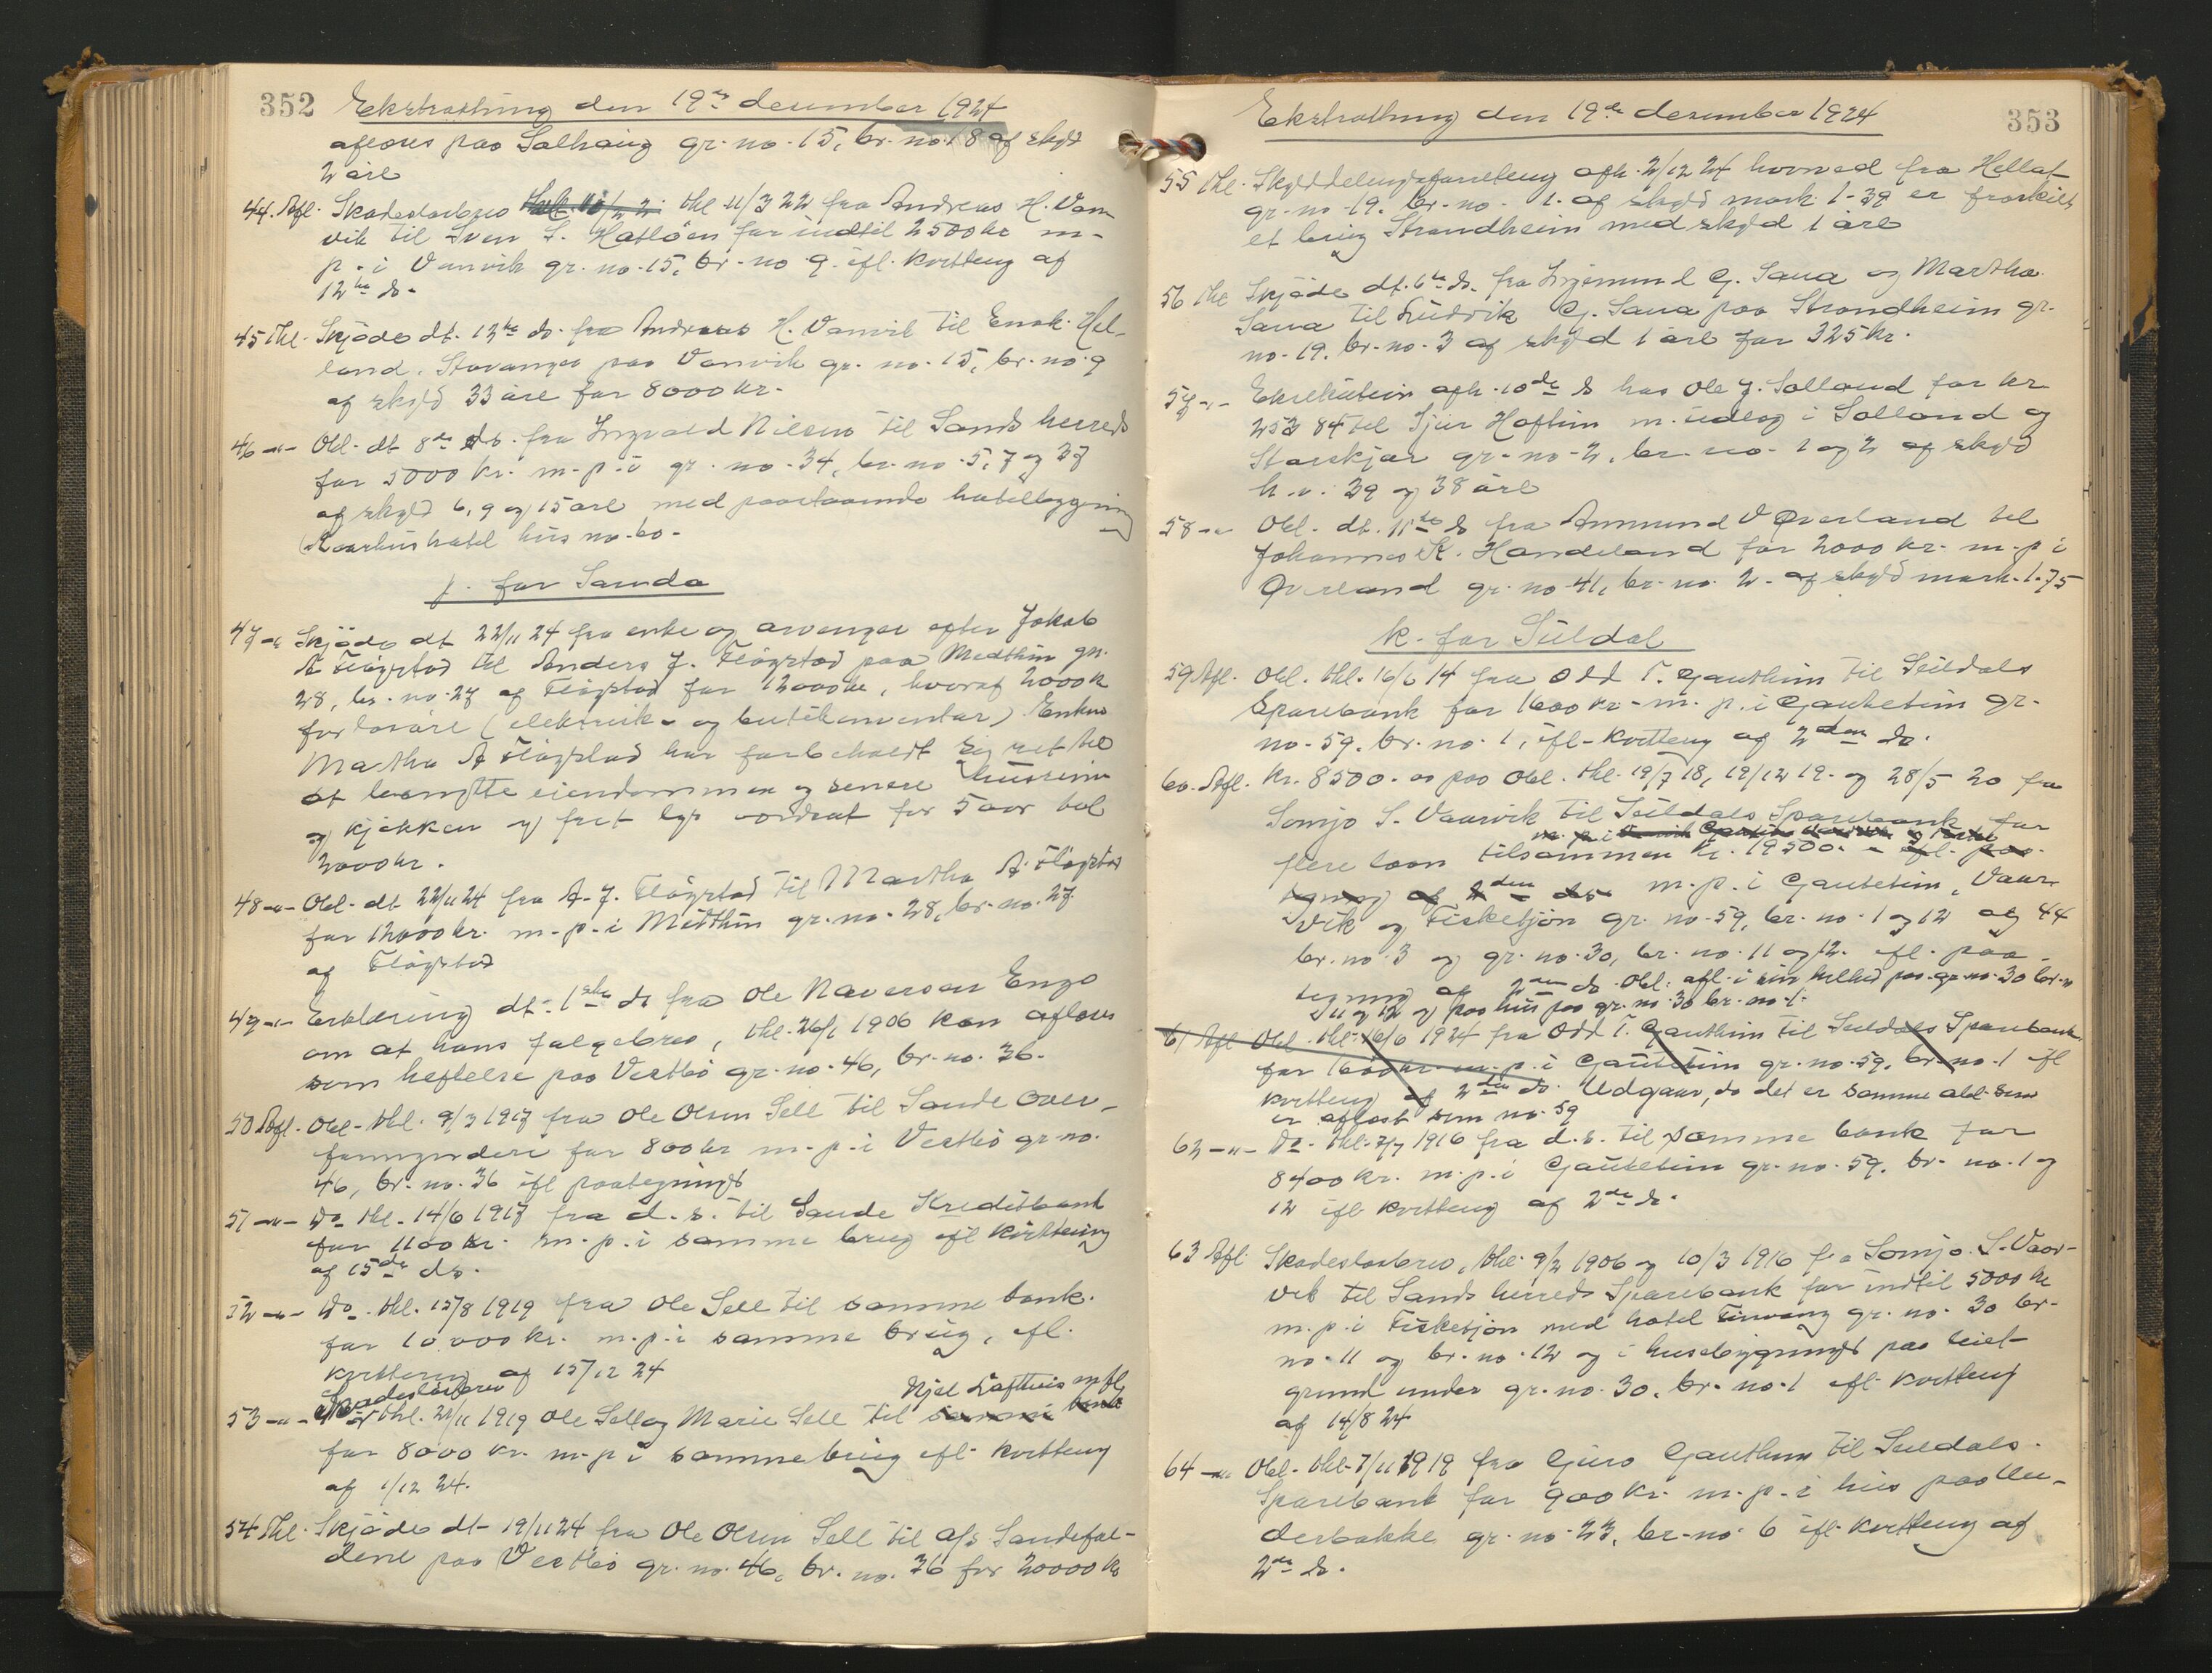 352 Ekstratting den 19de desember 1924
afløses paa Solhaug gr. no. 15, br. no. 18 af skyld
2 øre
44. Afl. Skadesløsbrev thl. 11/3 22 fra Andreas H. Van-
vik til Sven S. Hatløen for indtil 2500 kr m.
p. i Vanvik gr. no. 15, br. no 9 ifl. kvittering af
12te ds.
45 Thl. Skjøde dt. 13de ds. fra Andreas H. Vanvik til Enok Hel-
land, Stavanger paa Vanvik gr. no. 15, br. no. 9
af skyld 33 øre for 8000 kr.
46 -"- Obl. dt 8de ds. fra Ingvald Nilsen til Sands herred
for 5000 kr. m. p. i gr. no. 34, br. no. 5, 7 og 37
af skyld 6, 9 og 15 øre med paastaaende hotelbygning
Aarhus hotel hus no. 60.
j. for Sauda
47 -"- Skjøde dt 22/11 24 fra enke og arvinger efter Jakob
A Fløgstad til Anders J. Fløgstad paa Medthun gr.
28, br. no. 27 af Fløgstad for 12000 kr, hvoraf 2000 k
for løsøre (elektrisk- og butikinventar). Enken
Martha A Fløgstad har forbeholdt sig ret til
at benytte eiendommen og senere husrum
og kjøkken og frit lys vordsat for 5 aar til
2000 kr.
48 -"- Obl. dt 22/11 24 fra A. J. Fløgstad til Martha A. Fløgstad
for 12000 kr. m. p. i Midthun gr. no. 28, br. no. 27
af Fløgstad
49 -"- Erklæring dt. 1ste ds fra Ole Naversen Enge
om at hans følgebrev, thl. 26/1 1906 kan afløses
som heftelse paa Vestbø gr. no. 46, br. no. 36.
50 Afl. Obl. thl. 9/3 1917 fra Ole Olsen Sell til Sande Over-
formynderi for 800 kr m. p. i Vestbø gr. no.
46, br. no. 36 ifl paategningt
51 -"- Do thl. 14/6 1917 fra d. s. til Saude Kreditbank
for 1100 kr. m. p. i samme brug ifl kvittering
af 15de ds.
52 -"- Do. thl. 15/8 1919 fra Ole Sell til samme bank.
for 10.000 kr. m. p. i samme brug, ifl.
kvittering af 15/12 24
Skadesløsbrev Njel Lofthus m fl
53 -"- thl. 21/11 1919 Ole Sell og Marie Sell til samme bank
for 8000 kr. m. p i samme brug ifl. kvittering
af 1/12 24.
54 Thl. Skjøde dt. 19/11 24 fra Ole Olsen Sell til A/S Saudefal-
dene paa Vestbø gr. no. 46, br. no. 36 for 20000 kr
Ekstratting den 19de desember 1924 353
55 thl. Skylddelingsforretning afh. 2/12 24 hvorved fra Helland
gr. no 19. br. no. 1. af skyld mark 1.39 er fraskilt
et brug Strandheim med skyld 1 øre
56 thl Skjøde dt. 6te ds. fra Ingemund G. Saua og Martha
Saua til Ludvik G. Saua paa Strandheim gr.
no. 19. br. no. 3 af skyld 1 øre for 325 kr.
57 -"- Eksekution afh. 10de ds hos Ole J. Solland for kr
253 84 til Sjur Hoftun m. udlæg i Solland og
Storskjær gr. no. 2, br. no. 1 og 2 af skyld
h. v. 39 og 38 øre
58 -"- Obl. dt. 11te ds fra Ånmund V Øverland til
Johannes K. Handeland for 2000 kr. m. p i
Øverland gr. no 41, br. no. 2. af skyld mark. 1.75
k. for Suldal
59 Afl. Obl. thl. 16/6 14 fra Odd T. Gauthun til Suldals
Sparebank for 1600 kr. m. p. i Gautetun gr.
no. 59. br. no. 1, ifl. kvittering af 2den ds.
60. Afl. Kr. 8500.00 paa Obl. thl. 19/7 18, 19/12 19. og 28/5 20 fra
Somjo S. Vaarvik til Suldals Sparebank for
flere laan tilsammen kr. 19500. - ifl. paa-
tegning af 2den ds m. p. i Gautetun, Vaar-
vik og Fisketjøn gr. no. 59, br. no. 1 og 12 og 44
br. no. 3 og gr. no. 30, br. no. 11 og 12. ifl. paa-
tegning af 2den ds. Obl. afl. i sin helhed paa gr. no. 30 br. n
11 og 12 og paa hus paa gr. no 30 br. no. 1.
61 Afl Obl. thl. 16/6 1924 fra Odd T. Gauthun til Suldals Sparebank
for 1600 kr. m. p. i Gautetun gr. no. 59, br. no. 1 ifl
kvittering af 2den ds. Udgaar, da det er samme obl. som
er afløst som no. 59
62 -"- Do. thl. 7/7 1916 fra d. s. til samme bank for
8400 kr. m. p. i Gautetun gr. no. 59. br. no. 1 og
12 ifl kvittering af 2den ds.
63 Afl Skadesløsbrev, thl. 9/2 1906 og 10/3 1916 fra Somjo S. Vaar-
vik til Sands herreds Sparebank for indtil 5000 kr
m. p. i Fisketjøn med hotel gr. no. 30 br.
no. 11 og br. no. 12 og i husebygningt paa leiet
grund under gr. no. 30, br. no. 1 ifl. kvittering
af 14/8 24
64 -"- Obl. thl. 7/11 1919 fra Guro Gauthun til Suldals
Sparebank for 900 kr. m. p. i hus paa Un-
derbakke gr. no. 23, br. no. 6 ifl. kvittering af
2den ds.